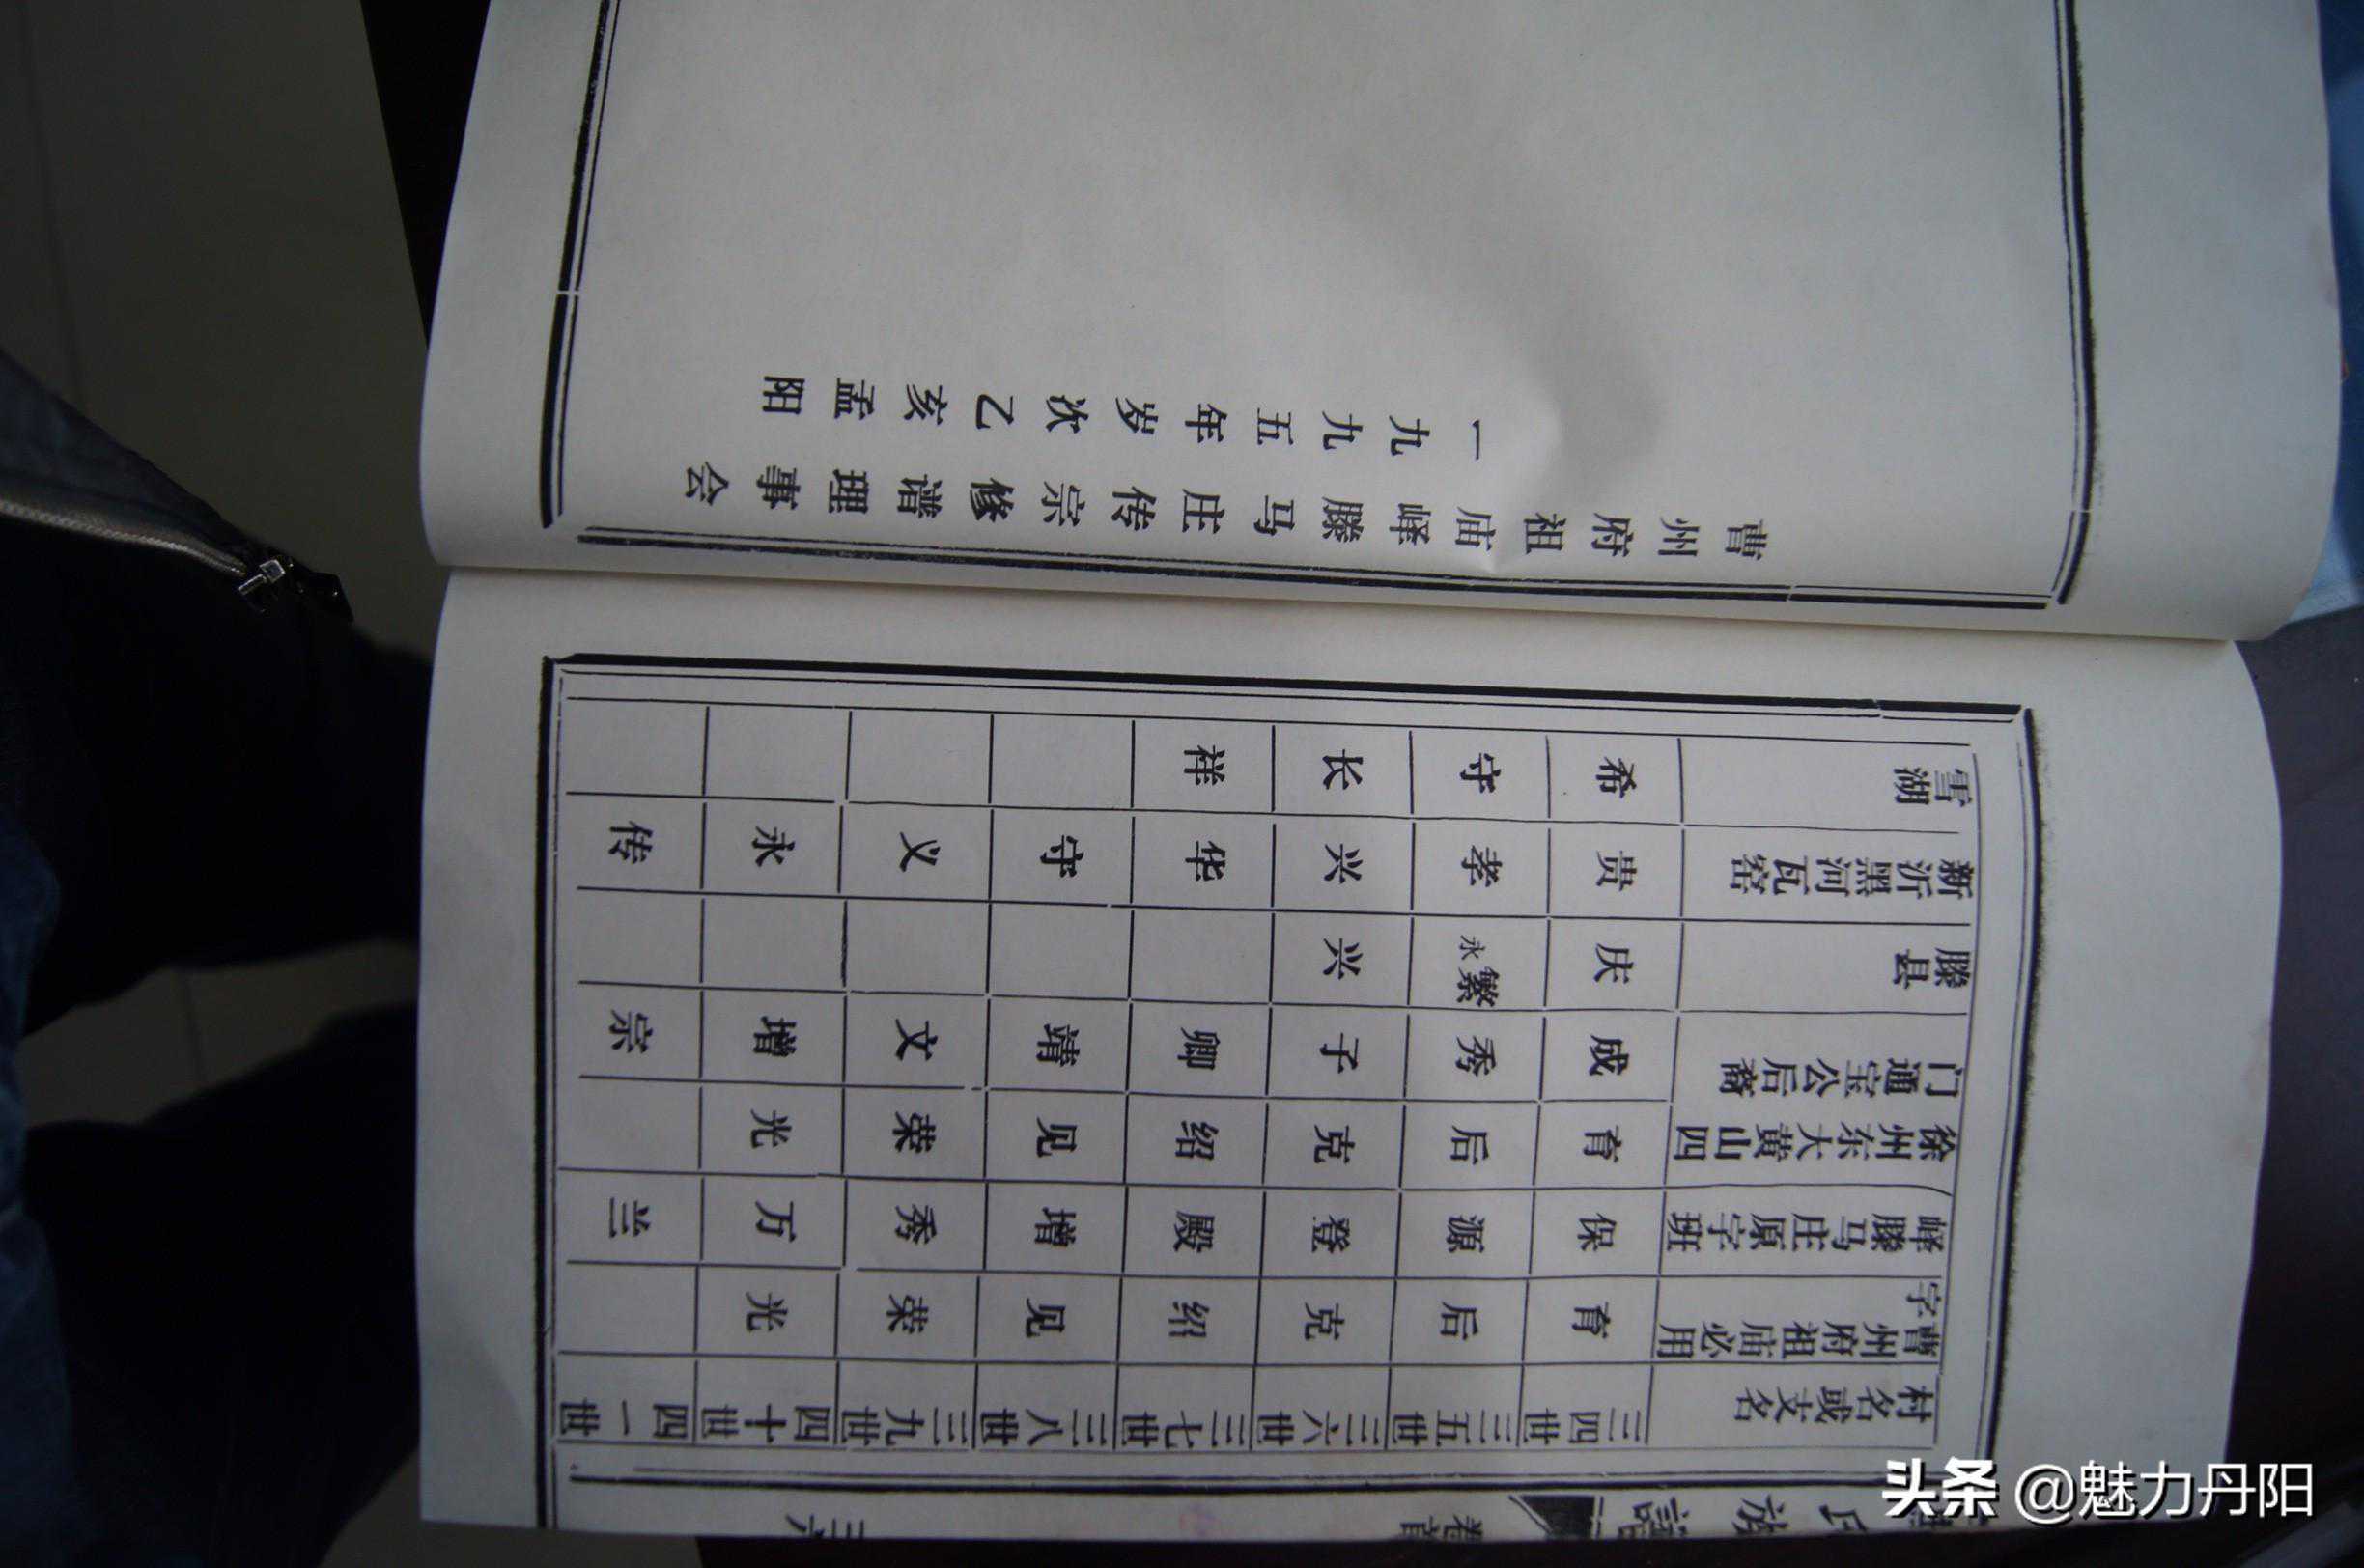 氏族譜 卷首 三六
村名或支名 三四世 三五世 三六世 三七世 三八世 三九世 四十世 四一世
曹州府祖庙必用字 育 后 克 绍 见 荣 光
峄滕马庄原字班 保 源 登 殿 增 秀 万 兰
徐州东大黄山四 育 后 克 绍 见 荣 光
门通宝公后裔 成 秀 子 卿 靖 文 增 宗
滕县 庆 繁永 兴
新沂黑河瓦窑 贵 孝 兴 华 守 义 永 传
雪湖 希 守 长 祥
曹州府祖庙峄滕马庄传宗修谱理事会
一九九五年岁次乙亥孟阳
头条 @魅力丹阳